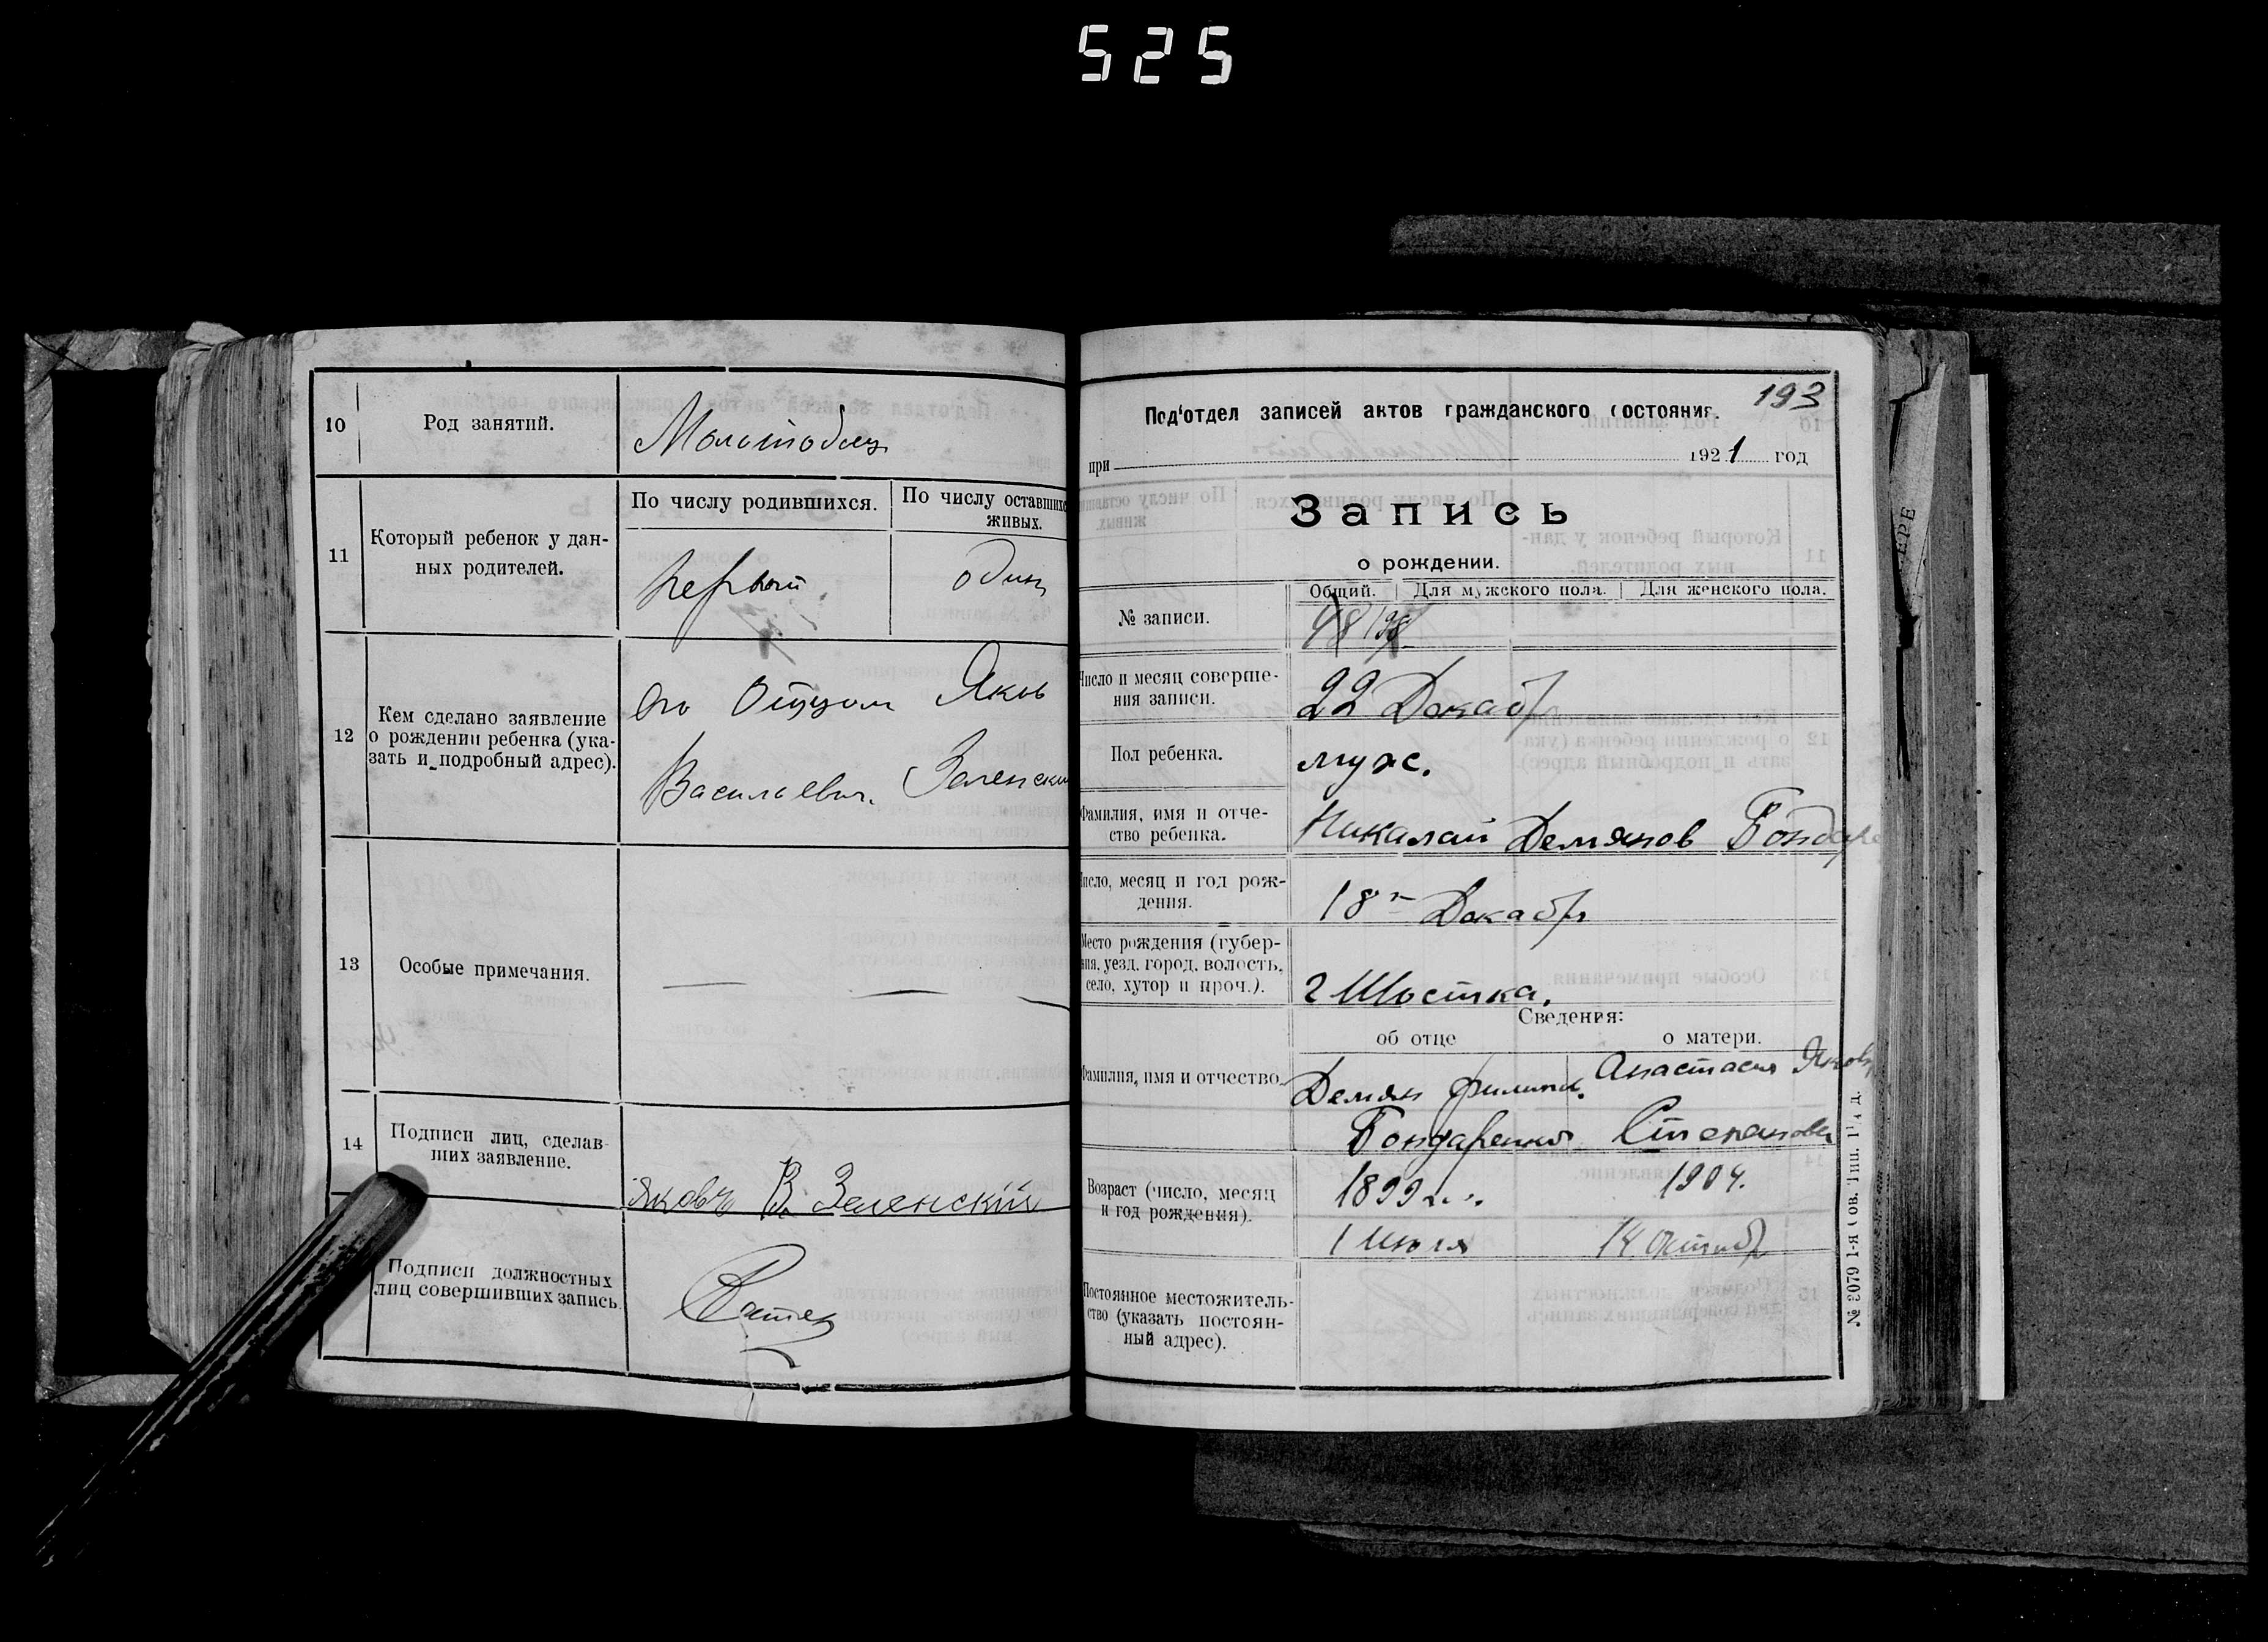 525
10
Род занятий.
Молотобоец
11
Который ребенок у дан-
ных родителей.
По числу родившихся.
По числу оставшихс
живых.
первый
один
12
Кем сделано заявление
о рождении ребенка (ука-
зать и подробный адрес).
Отцом Яков
Васильевич Зеленский
13
Особые примечания.
14
Подписи лиц, сделав-
ших заявление.
Яковъ В. Зеленскій
Подписи должностных
лиц совершивших запись.
193
Под'отдел записей актов гражданского состояния.
при 1921 год
Запись
о рождении.
Общий. Для мужского пола. Для женского пола.
№ записи.
Число и месяц соверше-
ния записи.
22 Декабр
Пол ребенка.
муж.
Фамилия, имя и отче-
ство ребенка.
Никалай Демянов Бондаре
Число, месяц и год рож-
дения.
18 Декабр
Место рождения (губер-
ния, уезд, город, волость,
село, хутор и проч.).
г Шостка.
Сведения:
об отце
о матери.
Фамилия, имя и отчество.
Демян Филип.
Бондаренко
Анастасия Яковл
Степанова
Возраст (число, месяц
и год рождения).
1899
1 Июля
1904.
14 Октябр
Постоянное местожитель-
ство (указать постоян-
ный адрес).
№ 3079 1-я Сов. Тип. 11/4 д.
ЕРЕ